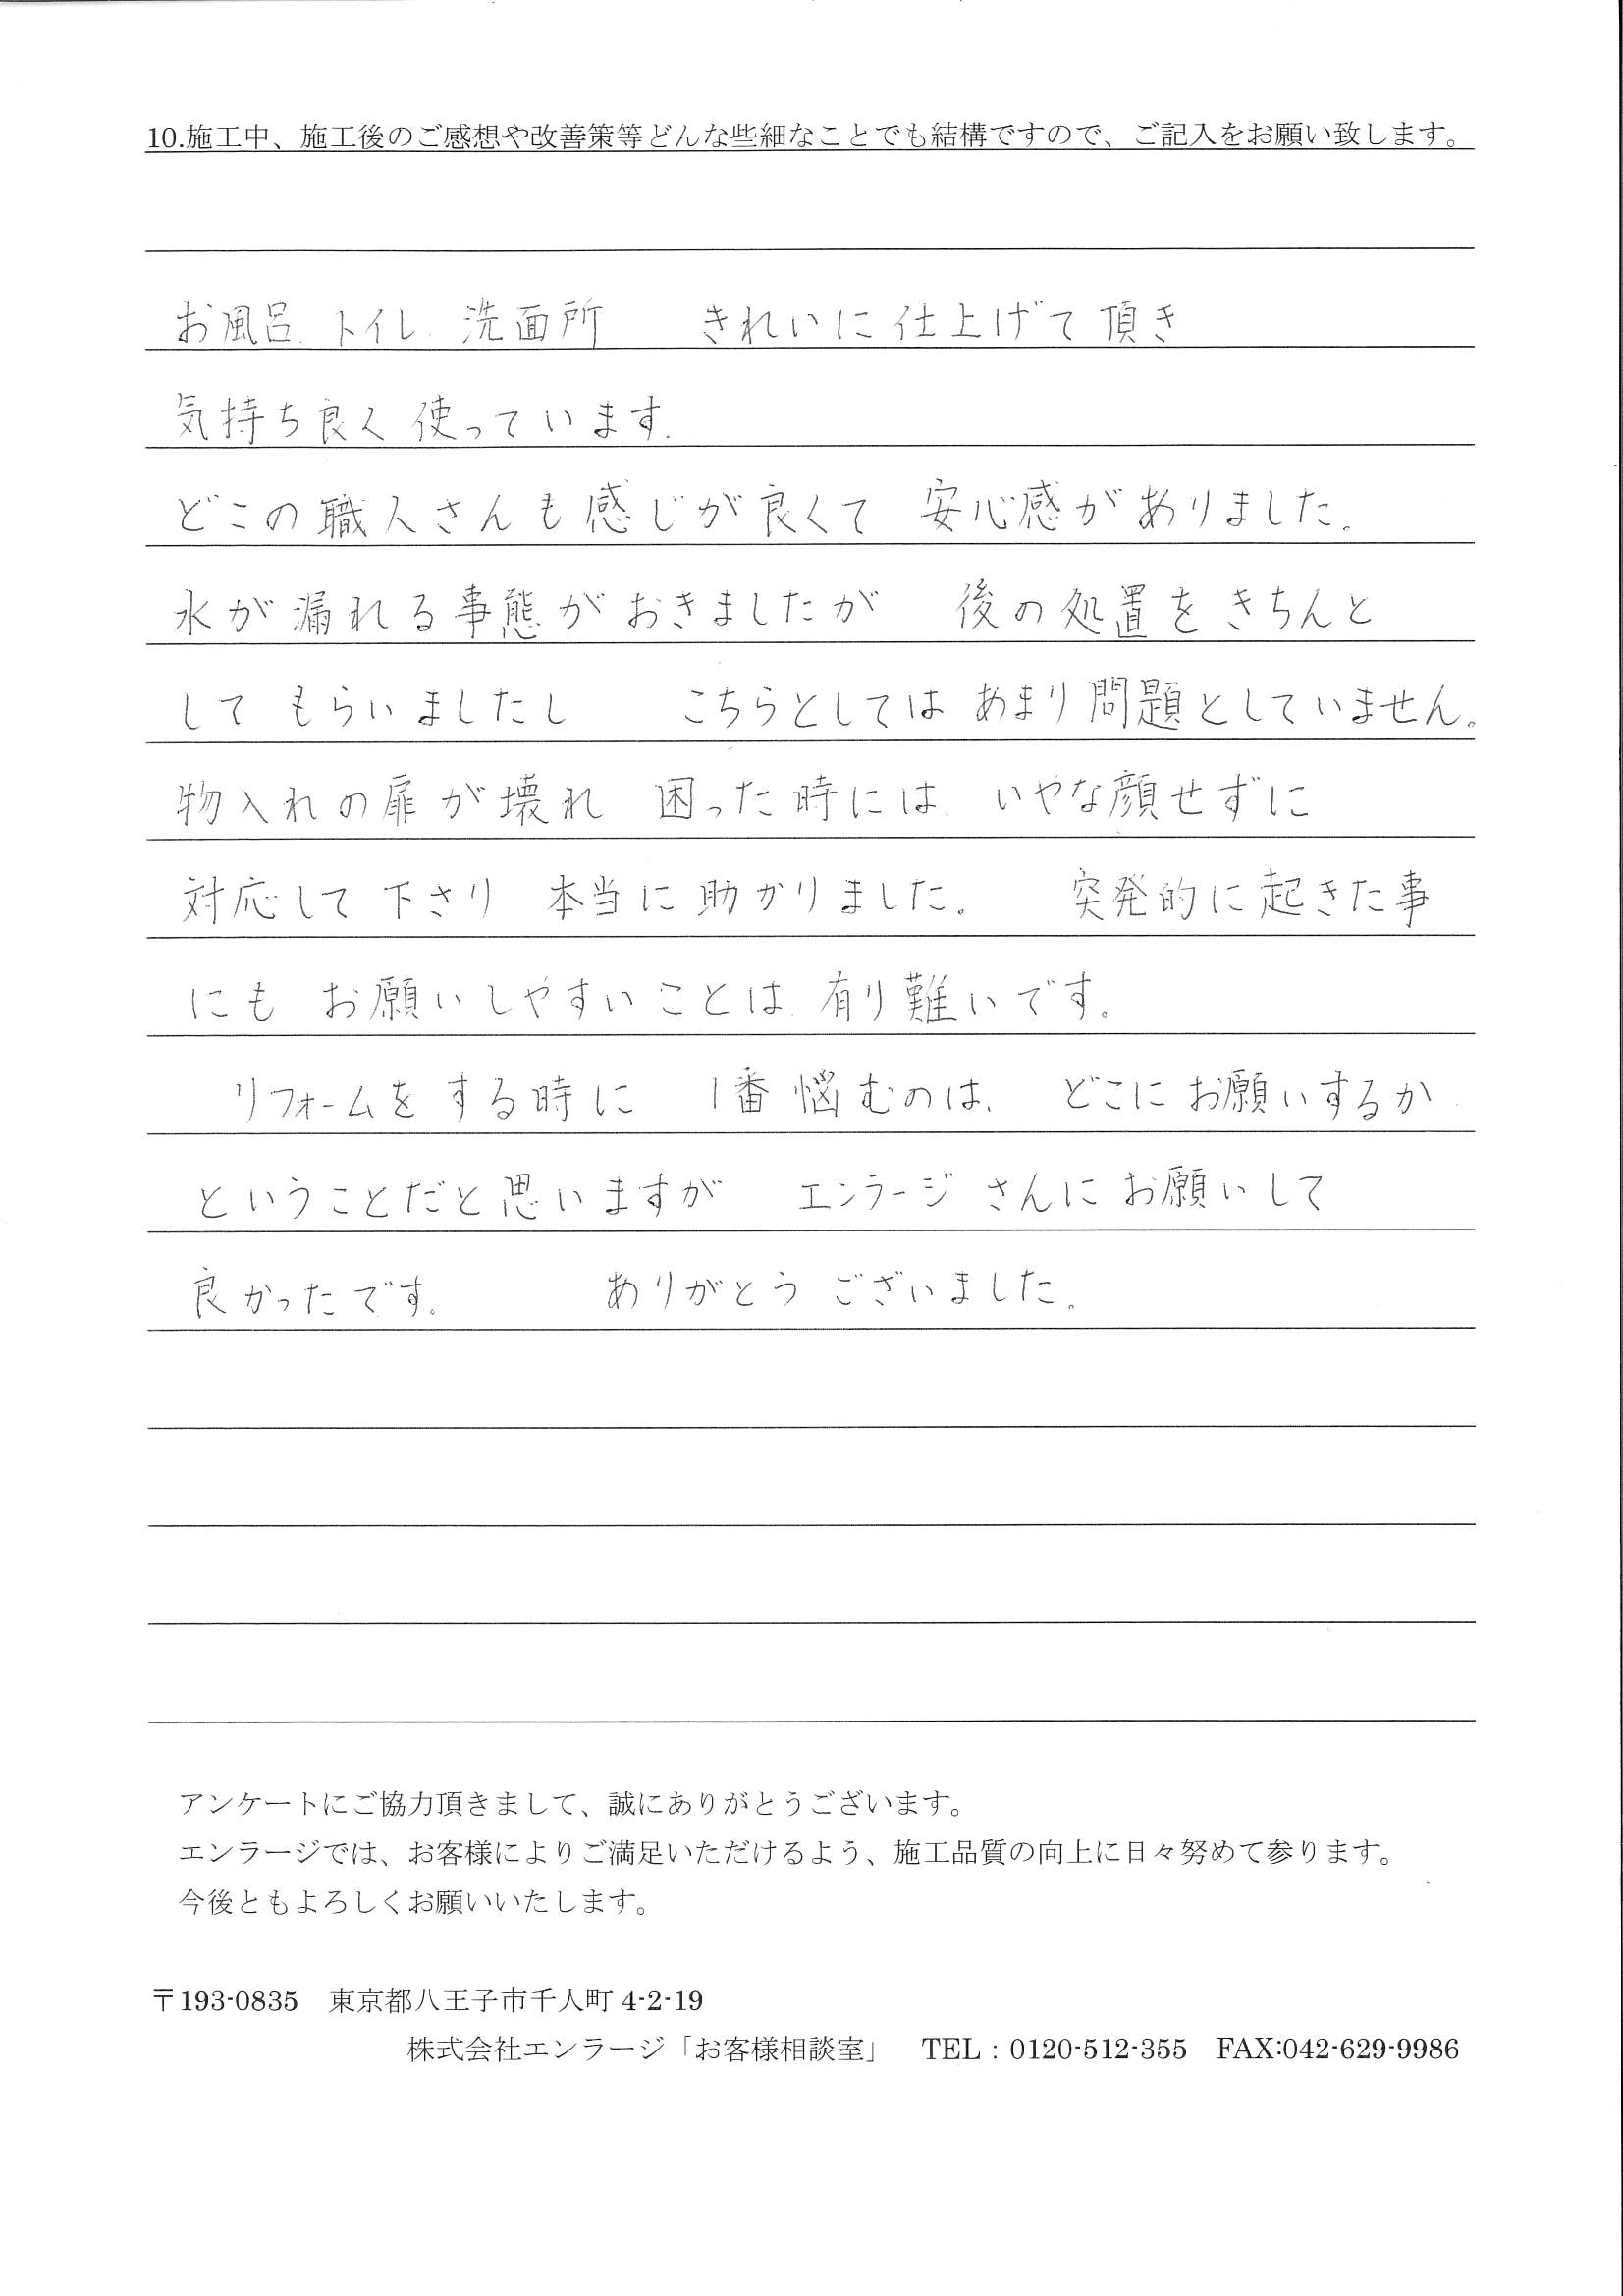 10.施工中、施工後のご感想や改善策等どんな些細なことでも結構ですので、ご記入をお願い致します。
お風呂、トイレ、洗面所　きれいに仕上げて頂き
気持ち良く使っています.
どこの職人さんも感じが良くて　安心感がありました。
水が漏れる事態がおきましたが　後の処置をきちんと
してもらいましたし　こちらとしてはあまり問題としていません。
物入れの扉が壊れ　困った時には、いやな顔せずに
対応して下さり　本当に助かりました。　突発的に起きた事
にも　お願いしやすいことは、有り難いです。
リフォームをする時に　1番悩むのは、　どこにお願いするか
ということだと思いますが　エンラージさんにお願いして
良かったです。　ありがとうございました。
アンケートにご協力頂きまして、誠にありがとうございます。
エンラージでは、お客様によりご満足いただけるよう、施工品質の向上に日々努めて参ります。
今後ともよろしくお願いいたします。
〒193-0835　東京都八王子市千人町 4-2-19
株式会社エンラージ「お客様相談室」　TEL：0120-512-355　FAX:042-629-9986